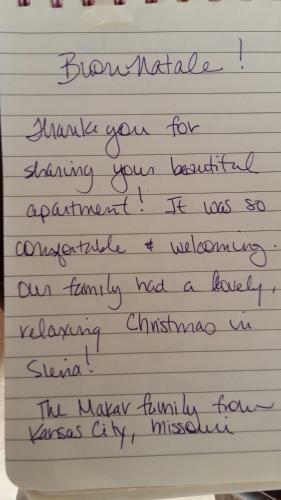 Buon Natale!
Thank you for
sharing your beautiful
apartment! It was so
comfortable & welcoming.
Our family had a lovely,
relaxing Christmas in
Siena!
The Makar family from
Kansas City, Missouri